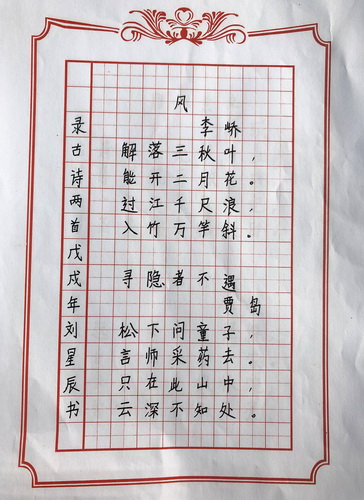 风
李峤
解落三秋叶，
能开二月花。
过江千尺浪，
入竹万竿斜。
寻隐者不遇
贾岛
松下问童子，
言师采药去。
只在此山中，
云深不知处。
录古诗两首戊戌年刘星辰书